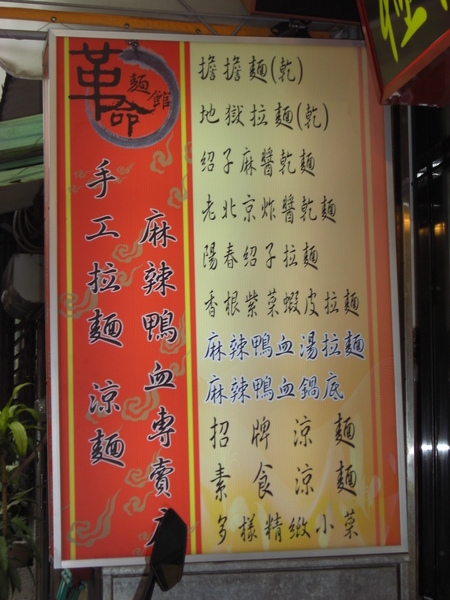 革命麵館
麻辣鴨血專賣
手工拉麵 涼麵
擔擔麵(乾)
地獄拉麵(乾)
紹子麻醬乾麵
老北京炸醬乾麵
陽春紹子拉麵
香根紫菜蝦皮拉麵
麻辣鴨血湯拉麵
麻辣鴨血鍋底
招牌涼麵
素食涼麵
多樣精緻小菜